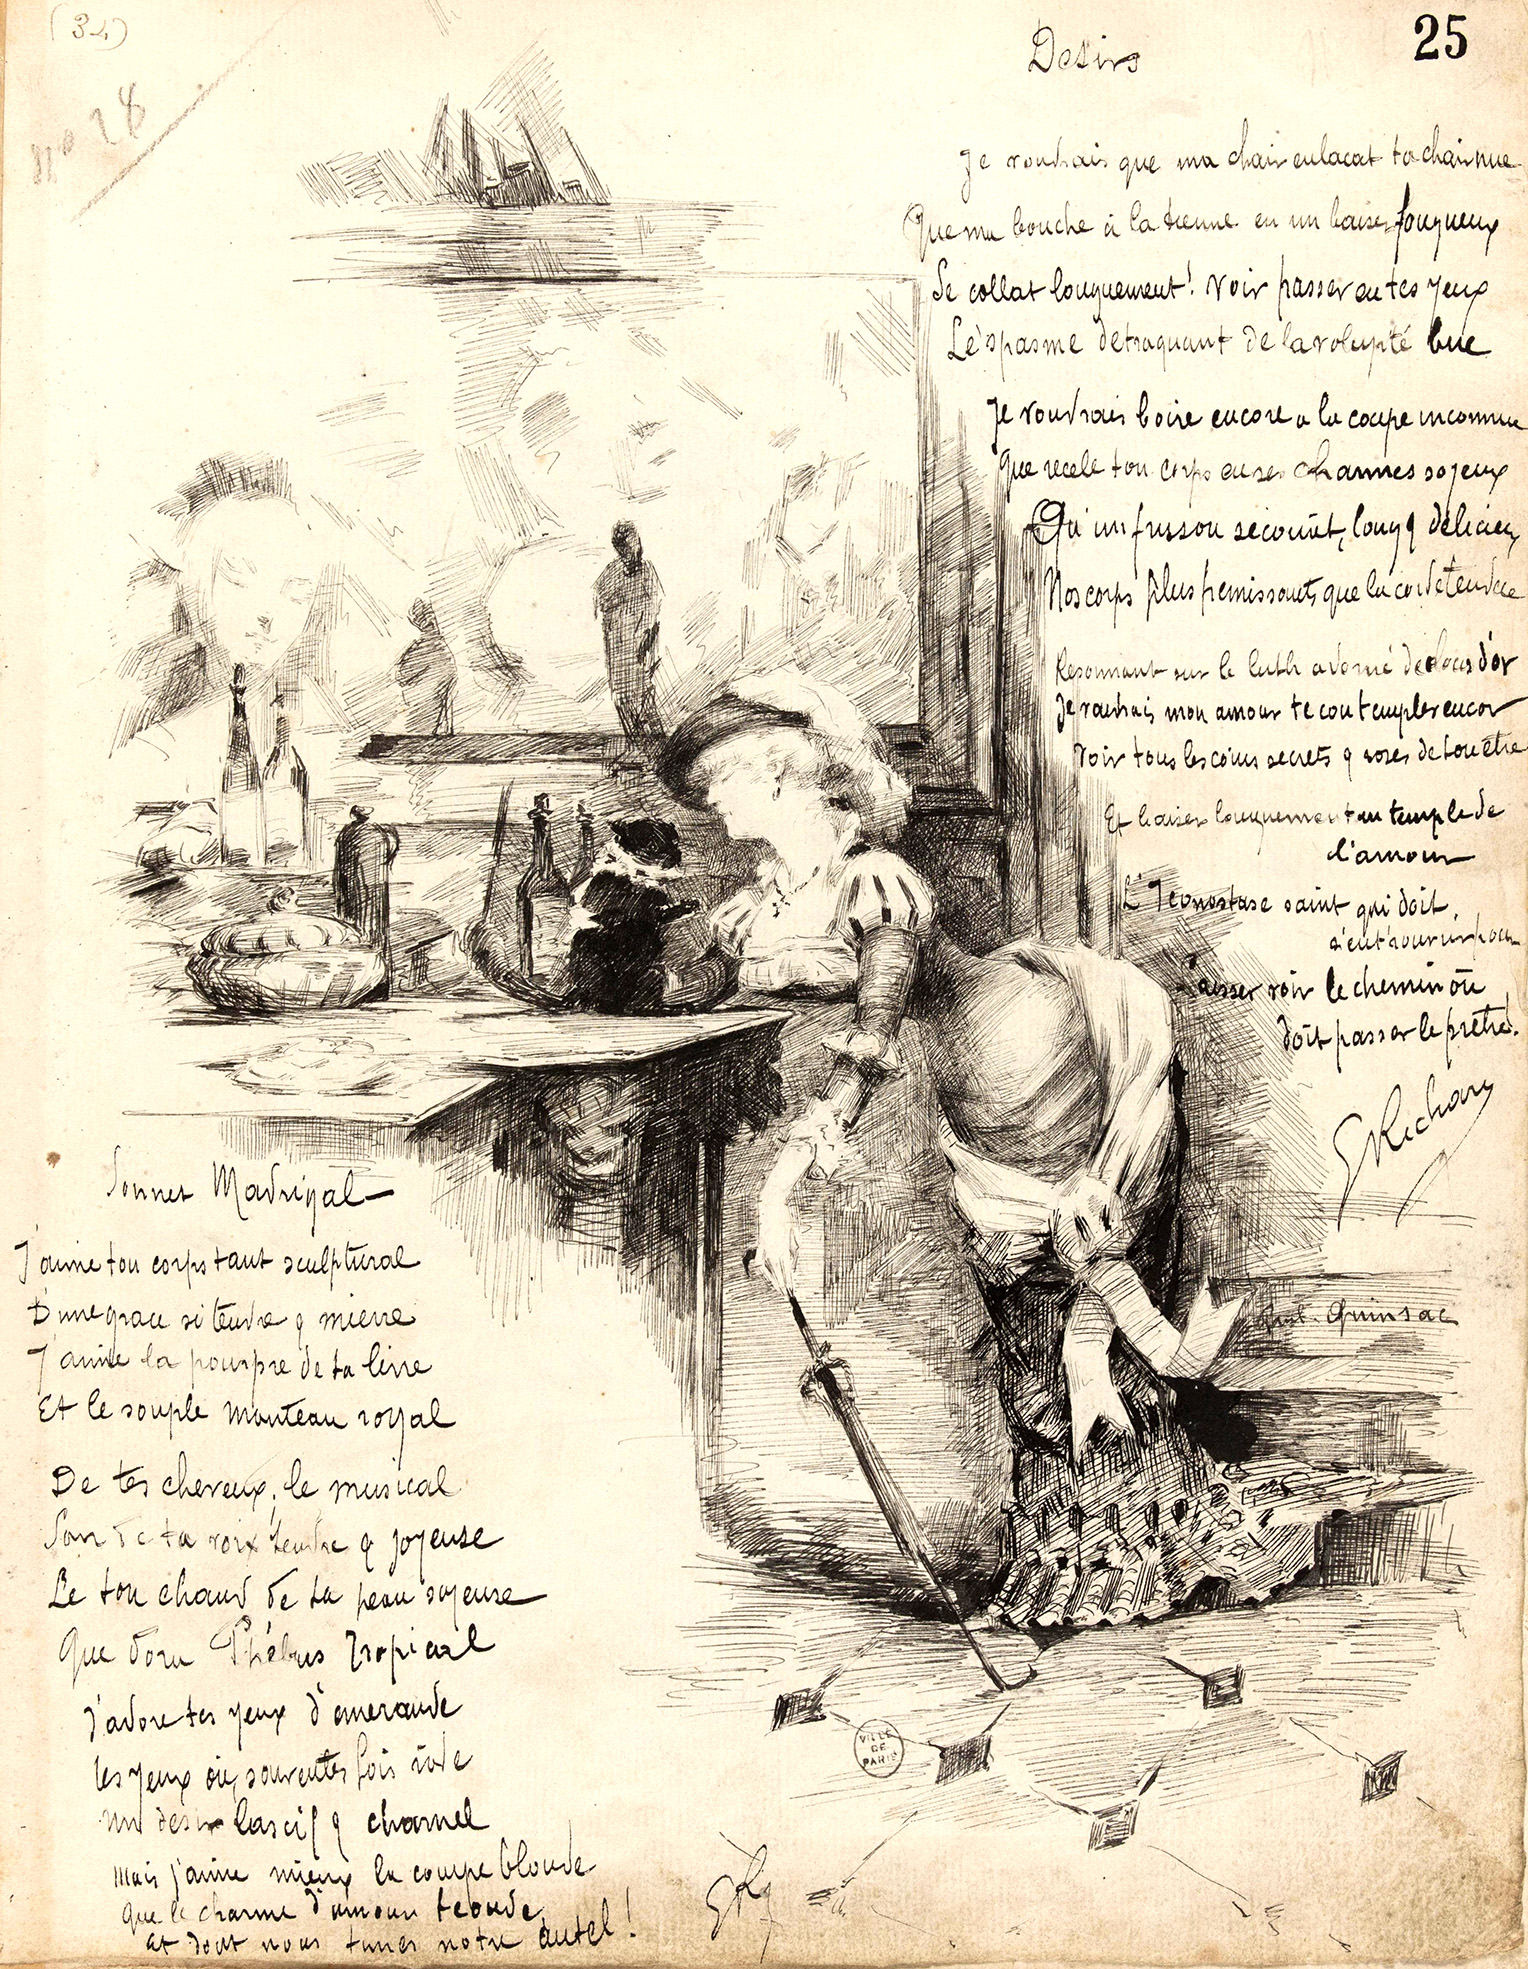 (34)
25
N° 28
Desirs
Je voudrais que ma chair enlacat ta chair nue
Que ma bouche à la tienne en un baiser fougueux
Se collat longuement! voir passer en tes yeux
Le spasme detraquant de la volupté bue
Je voudrais boire encore a la coupe inconnue
Que recele ton corps en ses charmes soyeux
Qu'un frisson secouât, long & délicieux
Nos corps plus fremissants que la corde tendue
Resonnant sur le luth adorné de clous d'or
Je voudrais mon amour te contempler encor
Voir tous les coins secrets & roses de ton être
Et baiser longuement au temple de
l'amour
L'Iconostase saint qui doit
s'entrouvrir pour
laisser voir le chemin où
doit passer le prêtre!
GRichard
Sonnet Madrigal
J'aime ton corps tant sculptural
D'une grace si tendre & mievre
J'aime la pourpre de ta levre
Et le souple manteau royal
De tes cheveux, le musical
Son de ta voix tendre & joyeuse
Le ton chaud de ta peau soyeuse
Que dora Phébus tropical
J'adore tes yeux d'emeraude
les yeux où, souventes fois rode
un desir lascif & charnel
Mais j'aime mieux la coupe blonde
Que le charme d'amour
Et dont nous notre autel!
Quinsac
VILLE
DE
PARIS